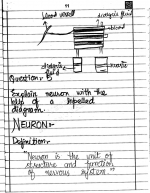 blood vessel
dialysis fluid
blood
dialysis fluid
waste
Question- 5
Explain neuron with the
help of a labelled
diagram.
NEURON-
Definition-
"Neuron is the unit of
structure and function
of nervous system"